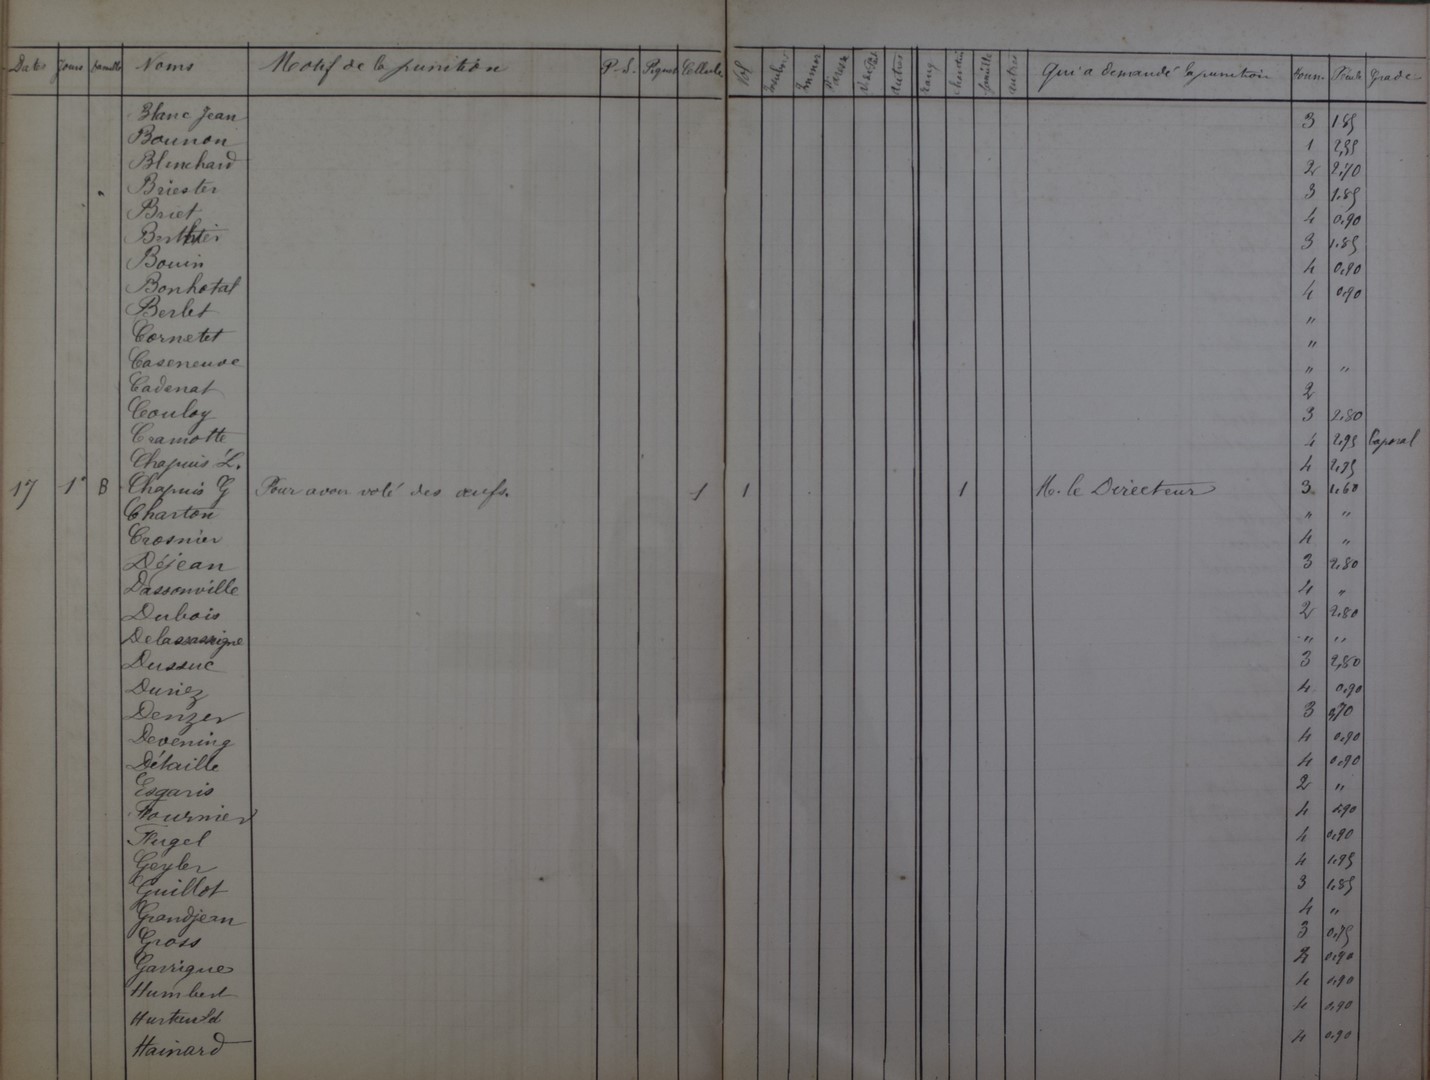 Dates Jours famille Noms Motif de la punition P.S. Piquet Cellule Vol autres rang chantier famille autres Qui a demandé la punition Grade
Blanc Jean 3 1.85
Bounon 1 2,95
Blanchard 2 2,70
Briester 3 1.85
Briet 4 0.90
Berthier 3 1.85
Bouin 4 0.90
Bonhotal 4 0.90
Berlet "
Cornetet "
Caseneuve " "
Cadenat 2
Couloy 3 2.80
Cramotte 4 2,95 Caporal
Chapuis L. 4 2,95
17 1º B Chapuis G Pour avoir volé des œufs. 1 1 1 M. le Directeur 3 1.60
Charton " "
Crosnier 4 "
Déjean 3 2,80
Dassonville 4 "
Dubois 2 2.80
Delassassigne " "
Dussuc 3 2,80
Duriez 4 0.90
Denzer 3 3,70
Devening 4 0.90
Détaille 4 0.90
Esgaris 2 "
Fournier 4 0.90
Flugel 4 0.90
Geyler 4 1.95
Guillot 3 1.85
Grandjean 4 "
Gross 3 0.75
Garrigue 2 0.90
Humbert 4 0.90
4 0.90
Hainard 4 0.90